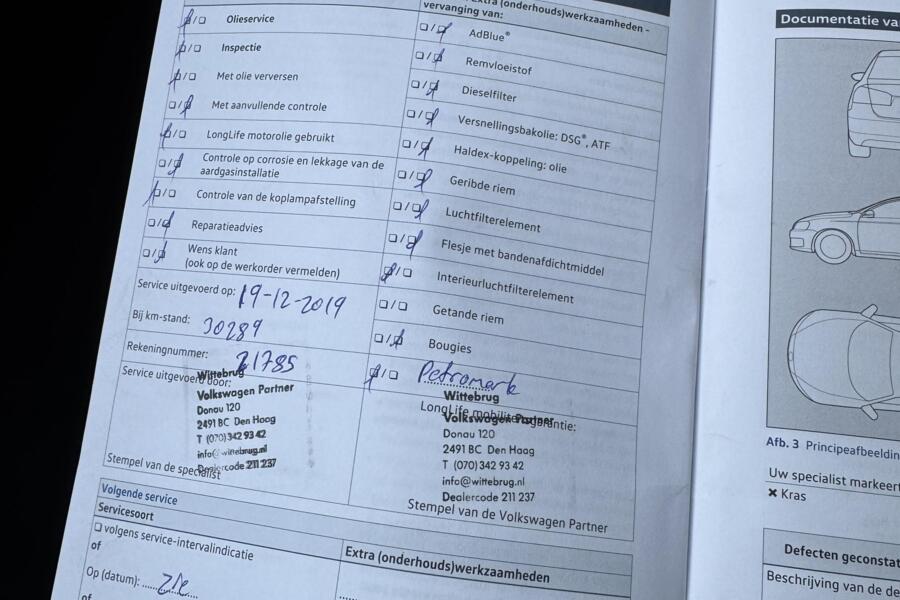 Extra (onderhouds)werkzaamheden -
vervanging van:
Olieservice
Inspectie
Met olie verversen
Met aanvullende controle
LongLife motorolie gebruikt
Controle op corrosie en lekkage van de
aardgasinstallatie
Controle van de koplampafstelling
Reparatieadvies
Wens klant
(ook op de werkorder vermelden)
Service uitgevoerd op: 19-12-2019
Bij km-stand: 30289
Rekeningnummer: 21785
Service uitgevoerd door:
Wittebrug
Volkswagen Partner
Donau 120
2491 BC Den Haag
T (070) 342 93 42
info@wittebrug.nl
Dealercode 211 237
Stempel van de specialist
AdBlue®
Remvloeistof
Dieselfilter
Versnellingsbakolie: DSG®, ATF
Haldex-koppeling: olie
Geribde riem
Luchtfilterelement
Flesje met bandenafdichtmiddel
Interieurluchtfilterelement
Getande riem
Bougies
Petromark
LongLife mobiliteitsgarantie:
Wittebrug
Volkswagen Partner
Donau 120
2491 BC Den Haag
T (070) 342 93 42
info@wittebrug.nl
Dealercode 211 237
Stempel van de Volkswagen Partner
Volgende service
Servicesoort
volgens service-intervalindicatie
of
Op (datum):
of
Extra (onderhouds)werkzaamheden
Documentatie
Afb. 3 Principeafbeelding
Uw specialist
× Kras
Defecten
Beschrijving van de